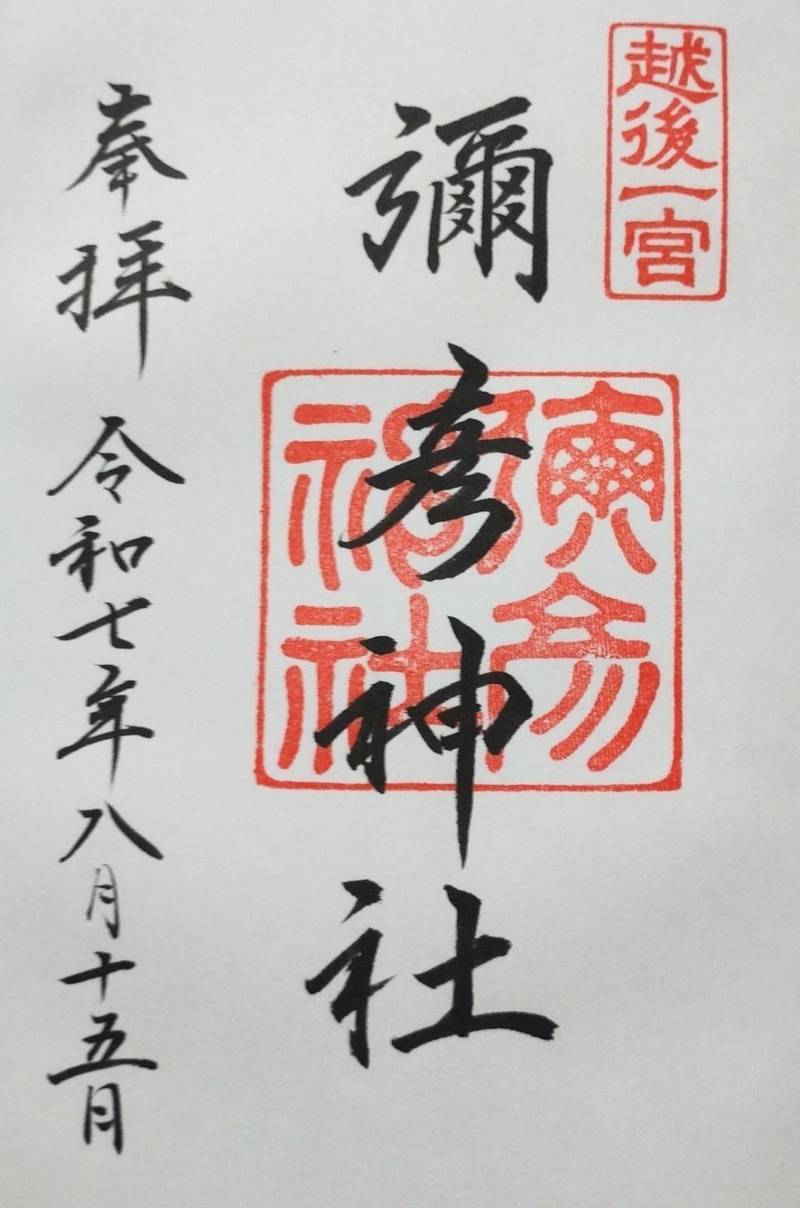 越後一宮
彌彦神社
彌彦
神社
奉拝 令和七年八月十五日